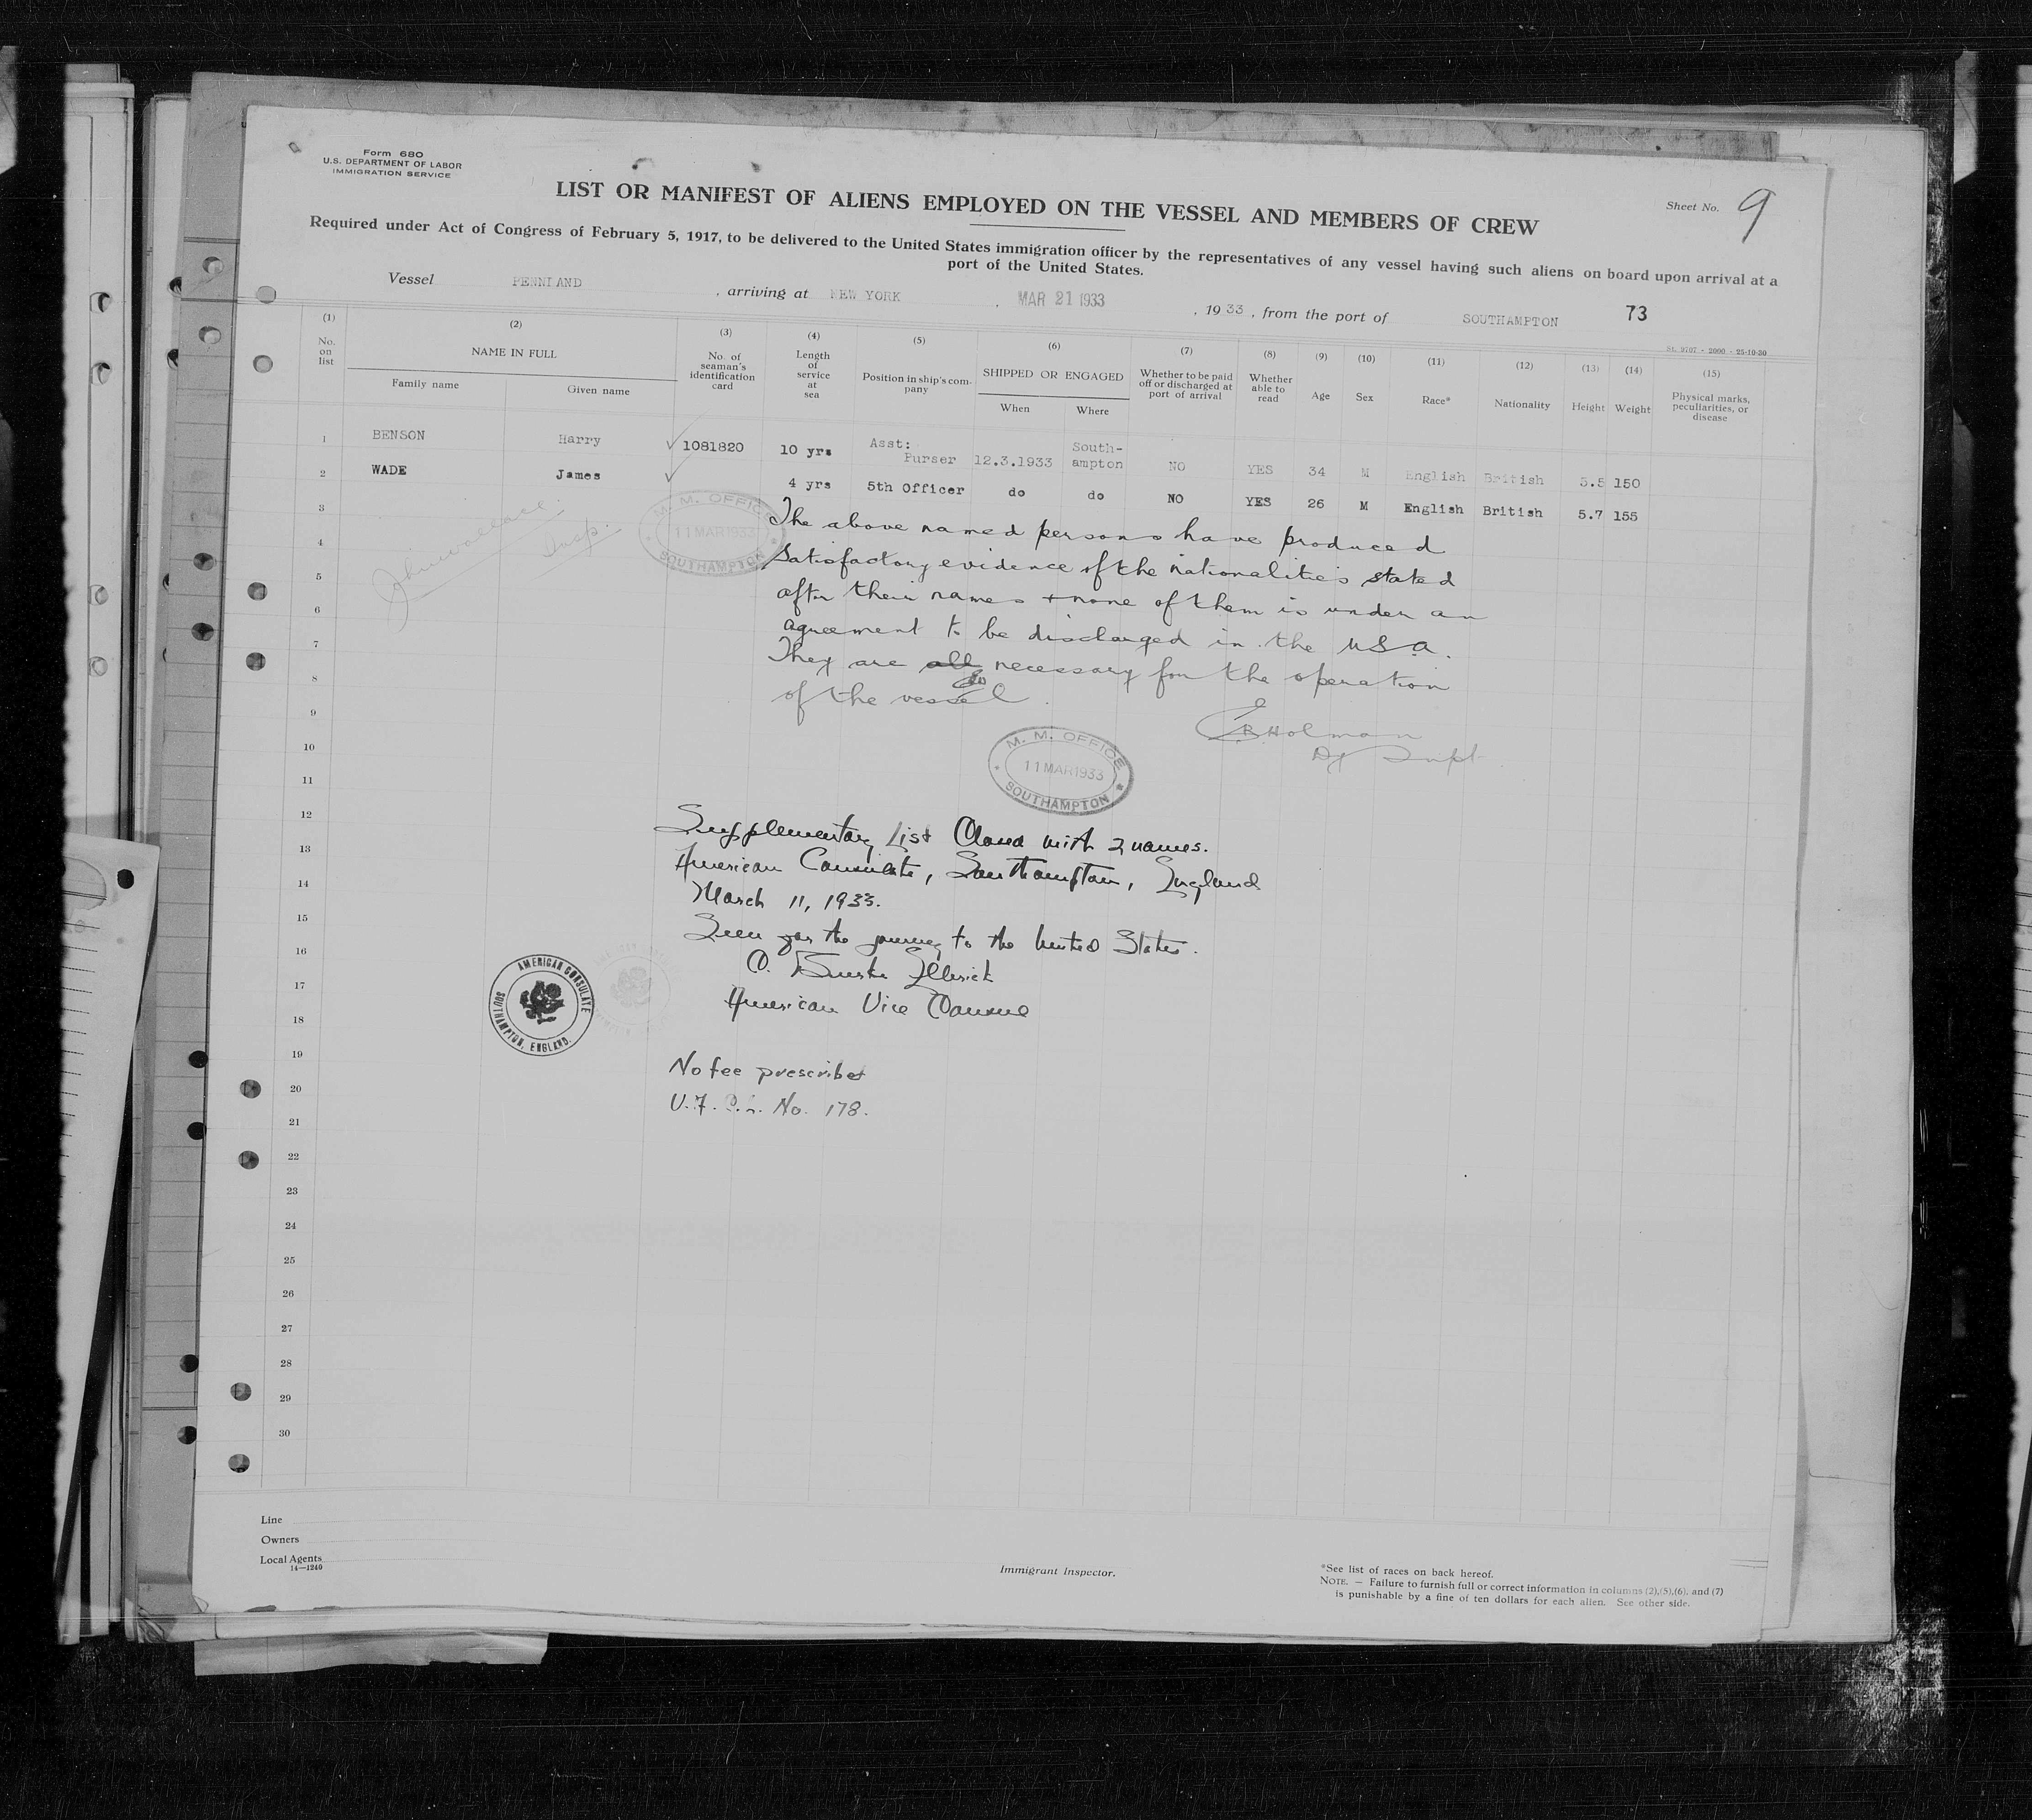 Form 680
U.S. DEPARTMENT OF LABOR
IMMIGRATION SERVICE
LIST OR MANIFEST OF ALIENS EMPLOYED ON THE VESSEL AND MEMBERS OF CREW
Sheet No. 9
Required under Act of Congress of February 5, 1917, to be delivered to the United States immigration officer by the representatives of any vessel having such aliens on board upon arrival at a
port of the United States.
Vessel PENNLAND , arriving at NEW YORK , MAR 21 1933 , 1933 , from the port of SOUTHAMPTON 73
St. 9797 - 2000 - 25-10-30
(1) (2) (3) (4) (5) (6) (7) (8) (9) (10) (11) (12) (13) (14) (15)
No. on list
NAME IN FULL
Family name Given name
No. of seaman's identification card
Length of service at sea
Position in ship's company
SHIPPED OR ENGAGED
When Where
Whether to be paid off or discharged at port of arrival
Whether able to read
Age Sex Race* Nationality Height Weight
Physical marks, peculiarities, or disease
1 BENSON Harry ✓ 1081820 10 yrs Asst: Purser 12.3.1933 South-ampton NO YES 34 M English British 5.5 150
2 WADE James ✓ 4 yrs 5th Officer do do NO YES 26 M English British 5.7 155
3
4
5
6
7
8
9
10
11
12
13
14
15
16
17
18
19
20
21
22
23
24
25
26
27
28
29
30
John Wallace
Insp.
M. M. OFFICE
11 MAR 1933
SOUTHAMPTON
The above named persons have produced
satisfactory evidence of the nationalities stated
after their names + none of them is under an
agreement to be discharged in the USA.
They are all necessary for the operation
of the vessel.
Holman
Dy Supt
M. M. OFFICE
11 MAR 1933
SOUTHAMPTON
Supplementary List Closed with 2 names.
American Consulate, Southampton, England
March 11, 1933.
Seen for the journey to the United States.
C. Burke Elbrick
American Vice Consul
AMERICAN CONSULATE
SOUTHAMPTON, ENGLAND.
No fee prescribed
No. 178.
Line
Owners
Local Agents
14—1240
Immigrant Inspector.
*See list of races on back hereof.
NOTE. — Failure to furnish full or correct information in columns (2),(5),(6), and (7)
is punishable by a fine of ten dollars for each alien. See other side.